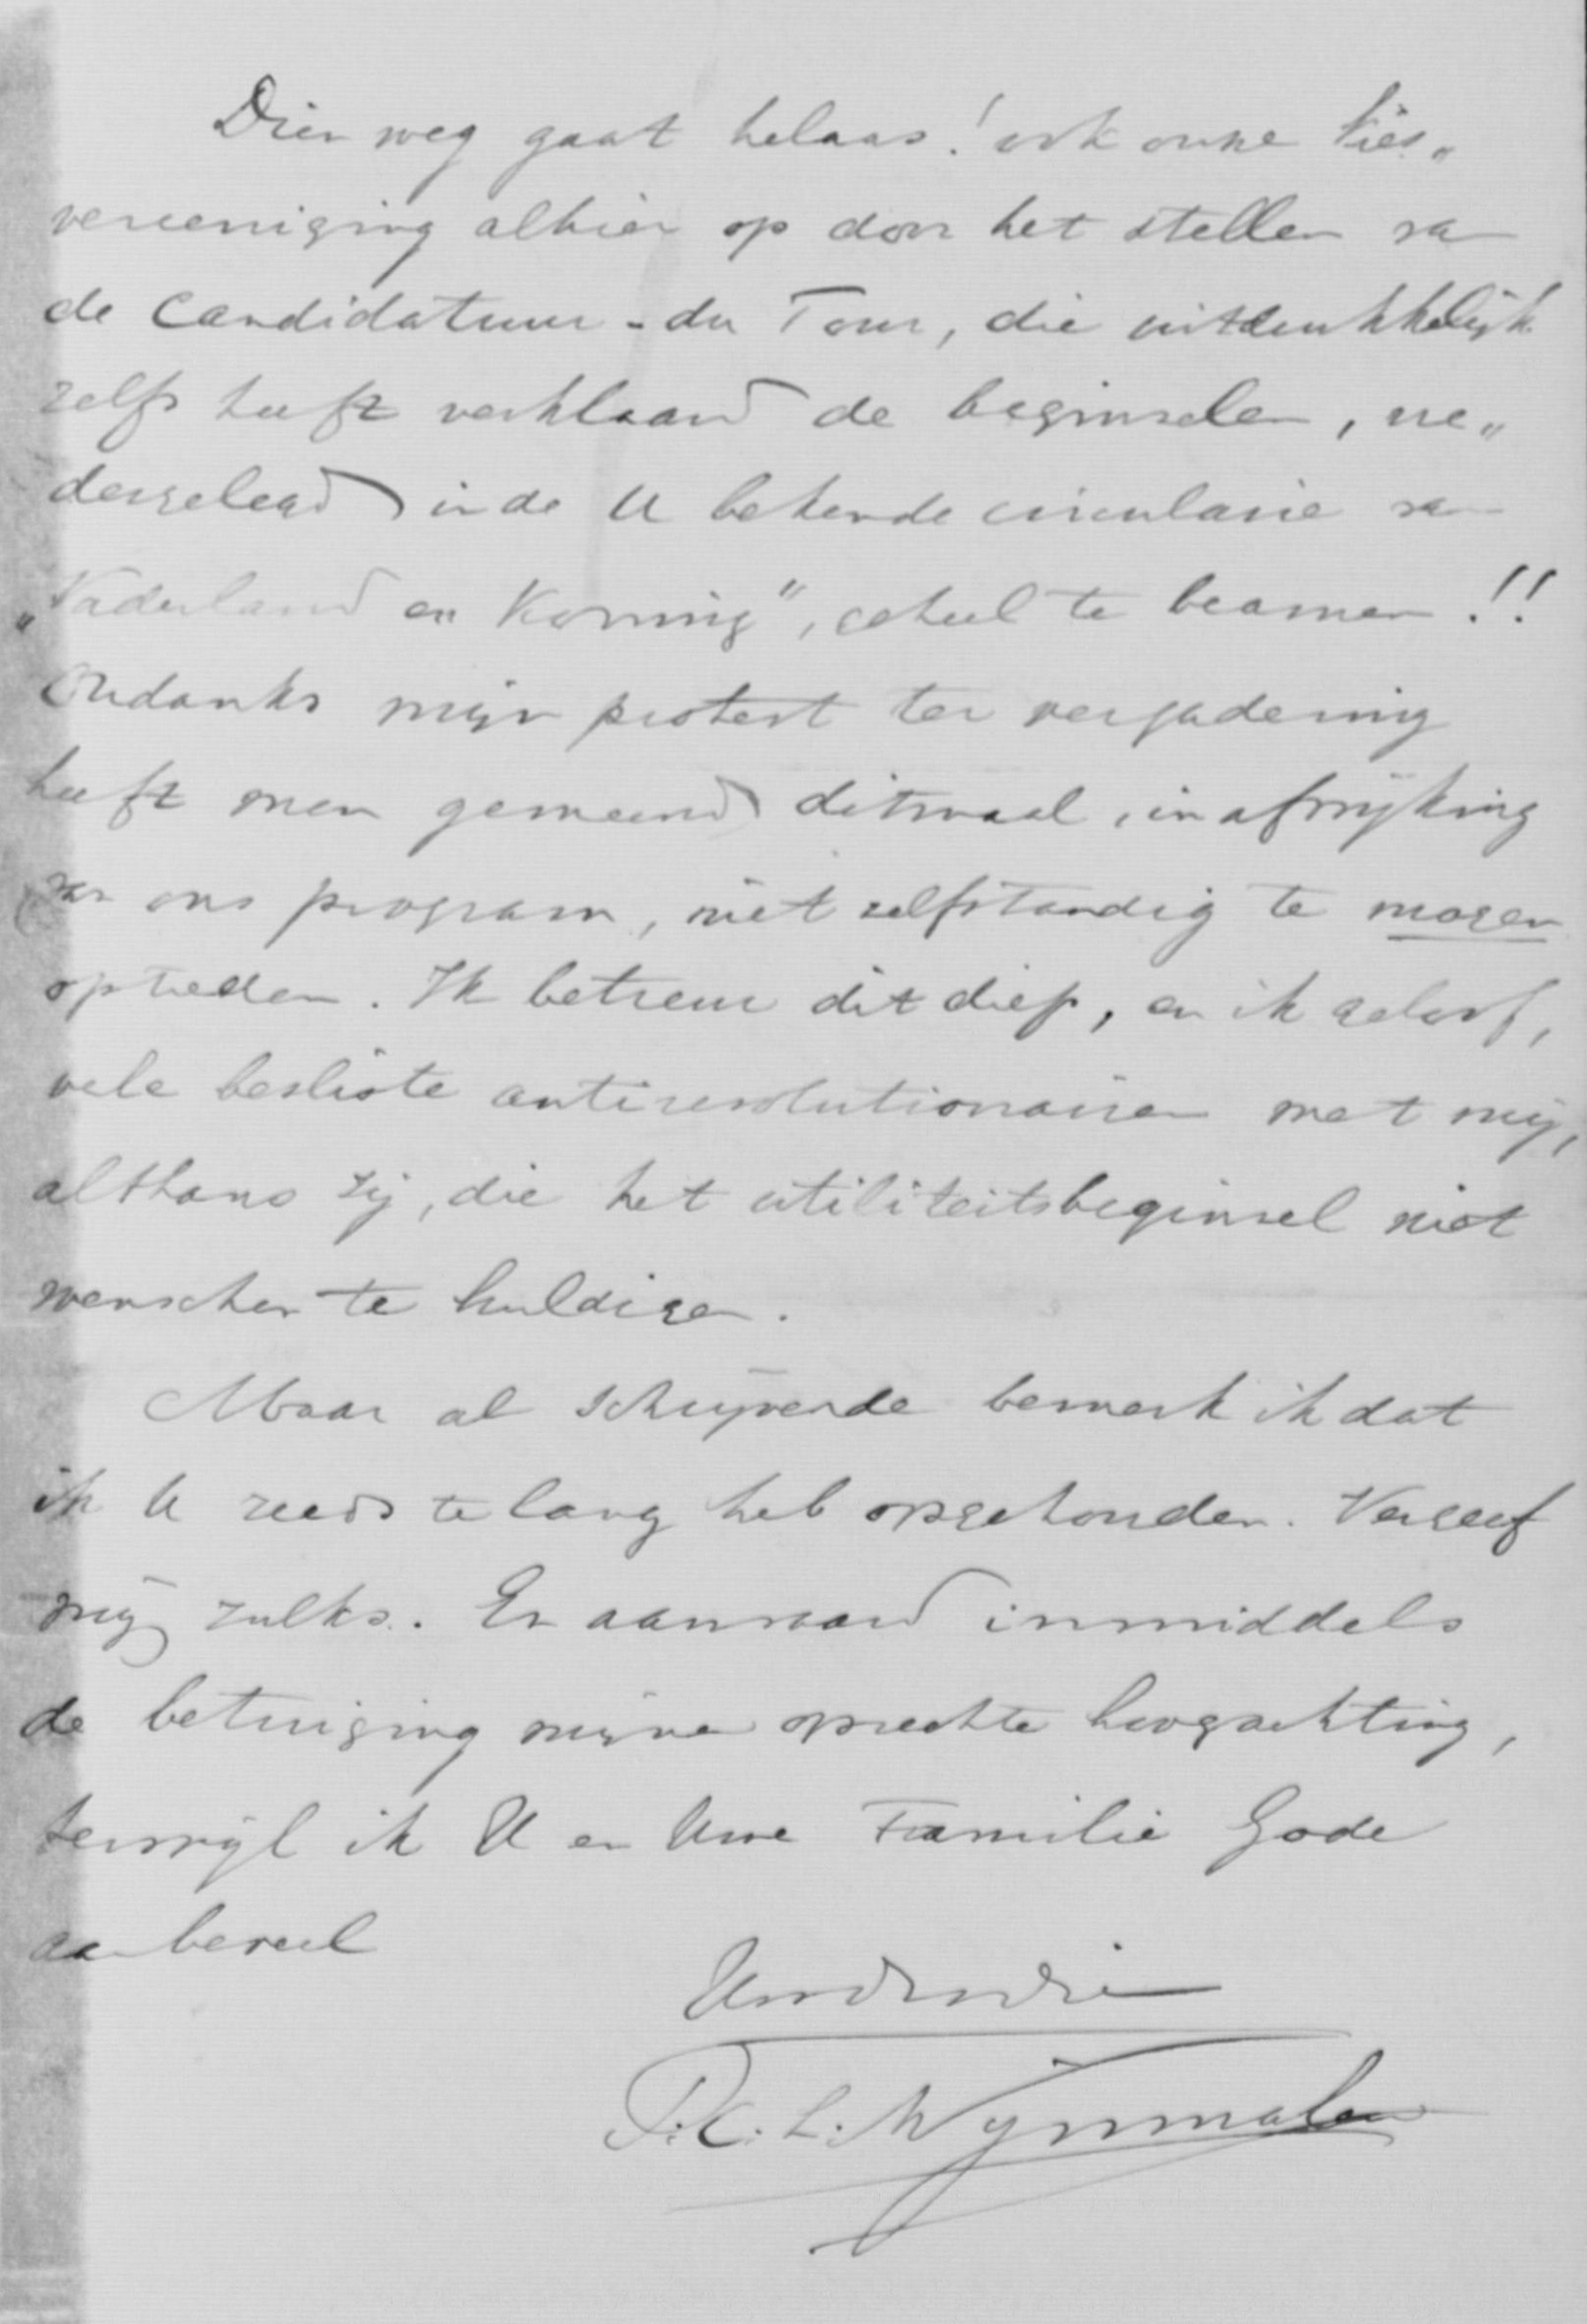 Dien weg gaat helaas! ook onze kies„
vereeniging alhier op door het stellen van
de Candidatuur - du Tour, die uitdrukkelijk
zelfs heeft verklaard de beginselen, ne„
dergelegd in de U bekende circulaire van
„Vaderland en Koning", geheel te beamen!!
Ondanks mijn protest ter vergadering
heeft men gemeend ditmaal, in afwijking
van ons program, niet zelfstandig te mogen
optreden. Ik betreur dit diep, en ik geloof,
vele besliste antirevolutionairen met mij,
althans zij, die het utiliteitsbeginsel niet
wenschen te huldigen.
Maar al schrijvende bemerk ik dat
ik U reeds te lang heb opgehouden. Vergeef
mij zulks. En aanvaard inmiddels
de betuiging mijner oprechte hoogachting,
terwijl ik U en Uwe Familie Gode
aanbeveel
Uwdwdien
P.C.L. Wijnmalen